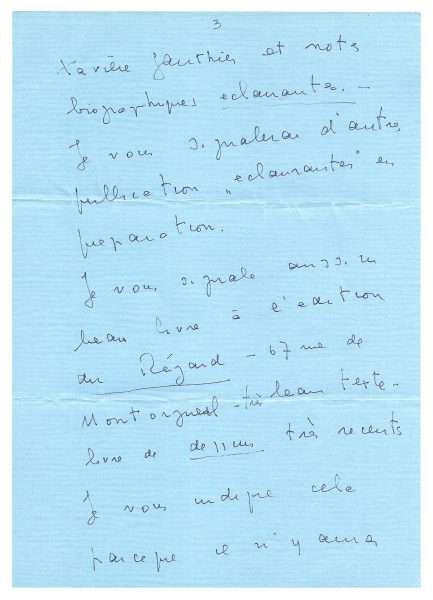 3
Xavière Gauthier et note
biographiques eclairantes. -
Je vous signalerai d'autres
publication "eclairantes" en
preparation.
Je vous signale aussi un
beau livre à l'edition
du Régard - 67 rue de
Montorgueil - très beau texte -
livre de dessins très recents
Je vous indique cela
parceque il n'y aura